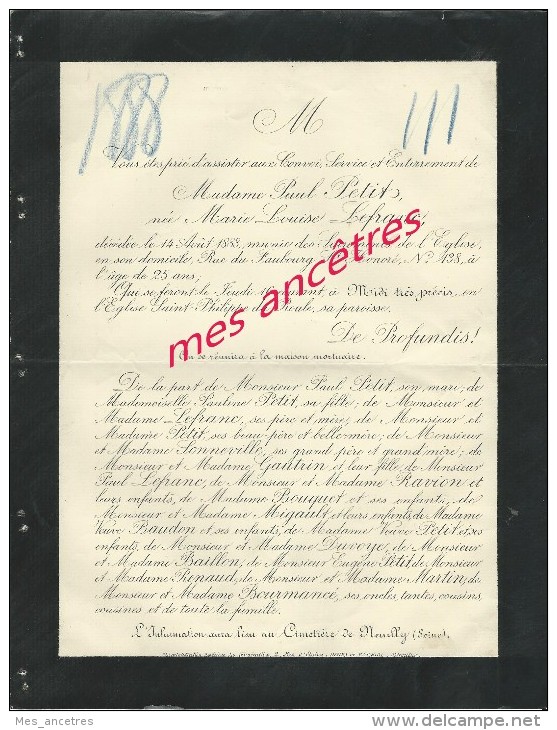 1888
111
M
Vous êtes prié d'assister aux Convoi, Service et Enterrement de
Madame Paul Petit,
née Marie Louise Lefranc,
décédée le 14 Août 1888, munie des Sacrements de l'Eglise,
en son domicile, Rue du Faubourg St Honoré, No 128, à
l'âge de 25 ans;
Qui se feront le Jeudi 16 courant, à Midi très précis, en
l'Eglise Saint-Philippe du Roule, sa paroisse.
De Profundis!
On se réunira à la maison mortuaire.
mes ancêtres
De la part de Monsieur Paul Petit, son mari; de
Mademoiselle Pauline Petit, sa fille; de Monsieur et
Madame Lefranc, ses père et mère; de Monsieur et
Madame Petit, ses beau-père et belle-mère; de Monsieur
et Madame Tonneville, ses grand père et grand'mère; de
Monsieur et Madame Gautrin et leur fille, de Monsieur
Paul Lefranc, de Monsieur et Madame Ravion et
leurs enfants, de Madame Bouquet et ses enfants, de
Monsieur et Madame Migault et leurs enfants, de Madame
Veuve Baudon et ses enfants, de Madame Veuve Petit et ses
enfants, de Monsieur et Madame Duroye, de Monsieur
et Madame Baillon, de Monsieur Eugène Petit, de Monsieur
et Madame Renaud, de Monsieur et Madame Martin, de
Monsieur et Madame Bourmancé, ses oncles, tantes, cousins,
cousines et de toute la famille.
L'Inhumation aura lieu au Cimetière de Neuilly (Seine).
Mes_ancetres
delcampe.net